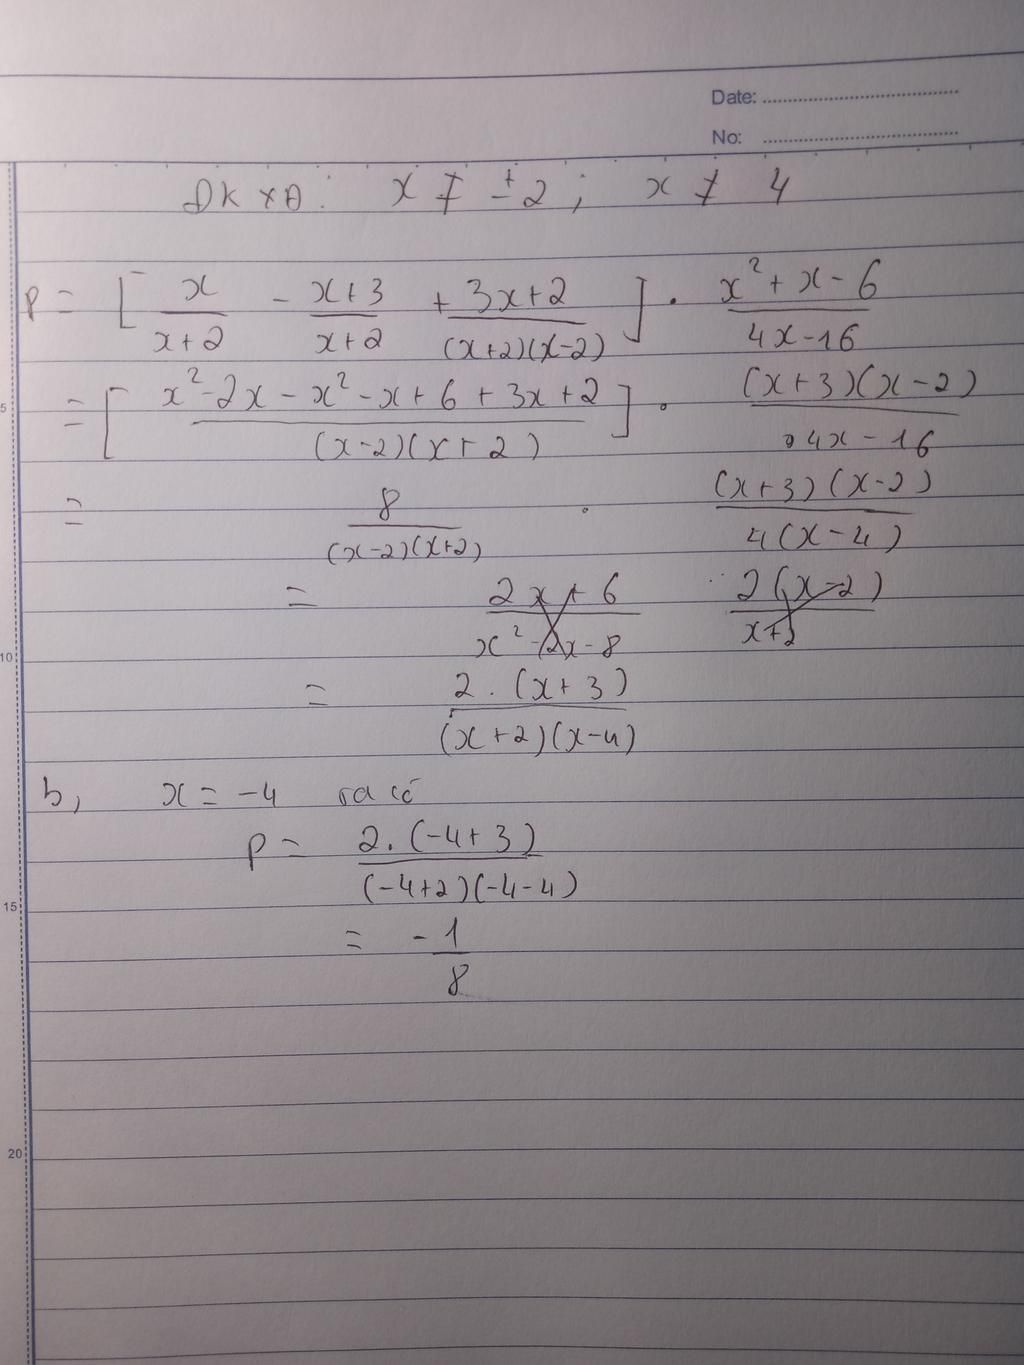 Date:
No:
ĐKXĐ: x ≠ ±2; x ≠ 4
P = [ x/(x+2) - (x+3)/(x+2) + (3x+2)/((x+2)(x-2)) ] . (x²+x-6)/(4x-16)
5
= [ (x²-2x-x²-x+6+3x+2)/((x-2)(x+2)) ] . ((x+3)(x-2))/(4x-16)
= 8/((x-2)(x+2)) . ((x+3)(x-2))/(4(x-4))
= (2x+6)/(x²-2x-8) 2(x-2)/(x+2)
10
= (2.(x+3))/((x+2)(x-4))
b, x = -4 ta có
P = (2.(-4+3))/((-4+2)(-4-4))
15
= -1/8
20